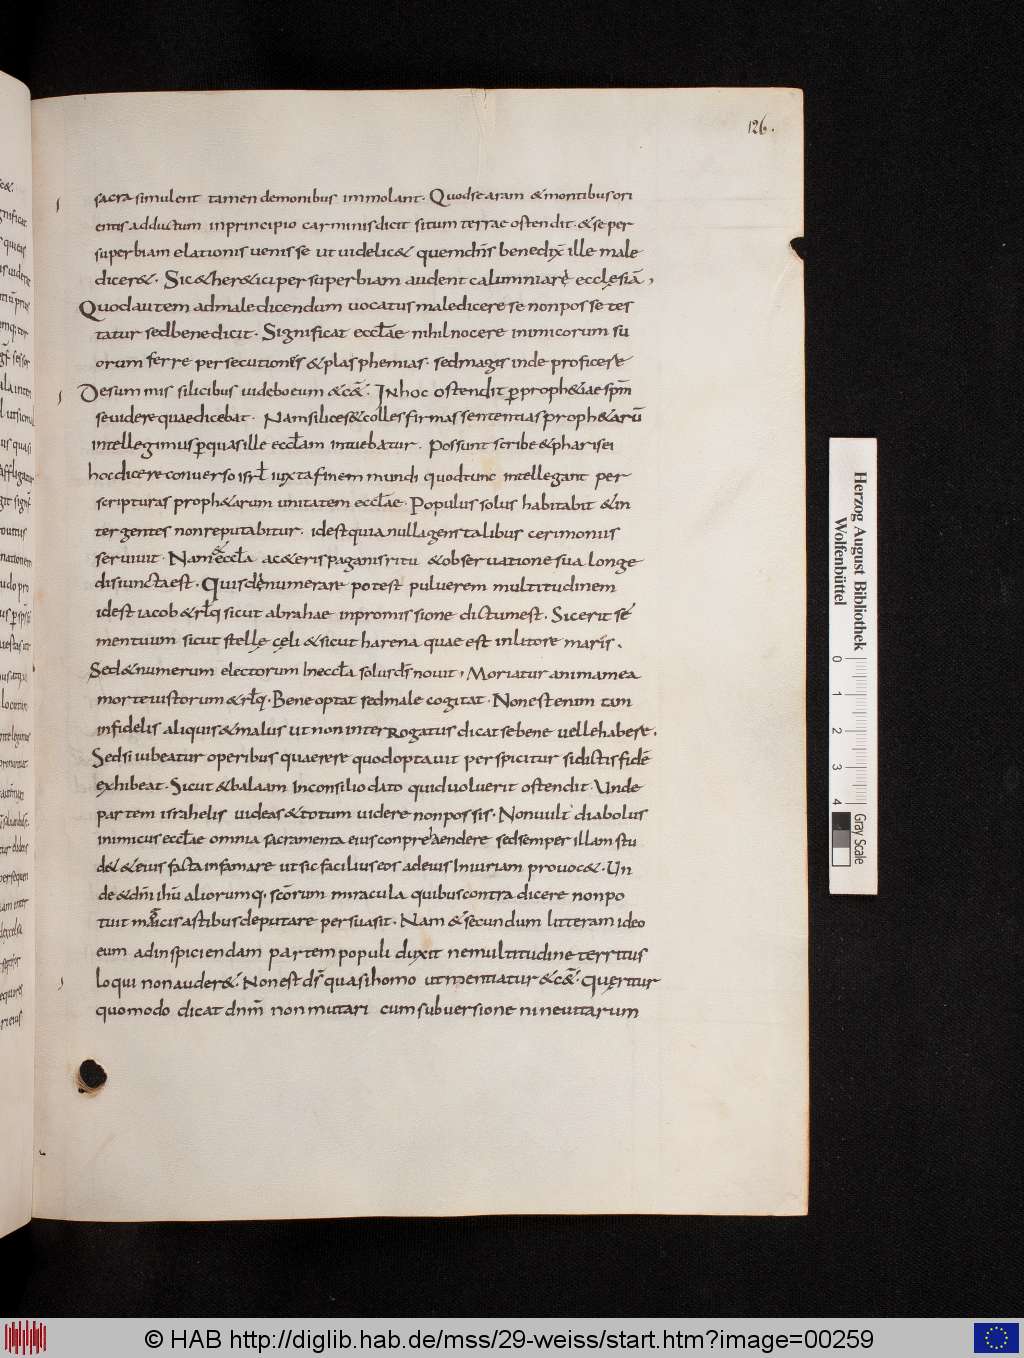 126.
sacra simulent tamen demonibus immolant. Quod se aram & montibus ori
entis adductum in principio carminis dicit situm terrae ostendit. & se per
superbiam elationis uenisse ut uidelic& quem dn̄s benedix̄ ille male
dicer&. Sic & her&ici per superbiam audent calumniare ecclęsiā,
Quod autem ad maledicendum uocatus maledicere se non posse tes
tatur sed benedicit. Significat eccl̄ae nihil nocere inimicorum su
orum ferre persecutiones & plasphemias. sed magis inde proficere
De summis silicibus uidebo eum & c&̄. In hoc ostendit ꝑ proph&iae sp̄m
se uidere quae dicebat. Nam silices & colles firmas sententias proph&arū
intellegimus ꝑ quas ille eccl̄am intuebatur. Possunt scribe & pharisei
hoc dicere conuerso isrl̄ iuxta finem mundi quod tunc intellegant per
scripturas proph&arum unitatem eccl̄ae. Populus solus habitabit & in
ter gentes non reputabitur. idest quia nulla gens talibus cerimoniis
seruiuit. Nam & eccl̄a ac&eris paganis ritu & obseruatione sua longe
disiuncta est. Quis dęnumerare potest puluerem multitudinem
idest iacob & rl̄q sicut abrahae in promissione dictum est. Sic erit se
men tuum sicut stellę cęli & sicut harena quae est in litore maris.
Sed & numerum electorum In eccl̄a solus dn̄s nouit, Moriatur anima mea
morte iustorum & rl̄q. Bene optat sed male cogitat. Non est enim tam
infidelis aliquis & malus ut non interrogatus dicat se bene uelle habere.
Sed si iubeatur operibus quaerere quod optauit perspicitur si dictis fidē
exhibeat. Sicut & balaam In consilio dato quid uoluerit ostendit. Unde
partem israhelis uideas & totum uidere non possis. Non uult diabolus
inimicus eccl̄ae omnia sacramenta eius conprehendere sed semper illam stu
d& & eius facta infamare ut sic facilius eos ad eius Iniuriam prouoc&. Un
de & dn̄i ih̄u aliorumq. sc̄orum miracula quibus contradicere non po
tuit magicis astibus deputare persuasit. Nam & secundum litteram ideo
eum ad inspiciendam partem populi duxit ne multitudine territus
loqui non auder&. Non est ds̄ quasi homo ut mentiatur & c&̄. Quęritur
quomodo dicat dn̄m non mutari cum subuersione nineuitarum
Herzog August Bibliothek
Wolfenbüttel
0 1 2 3 4
Gray Scale
© HAB http://diglib.hab.de/mss/29-weiss/start.htm?image=00259